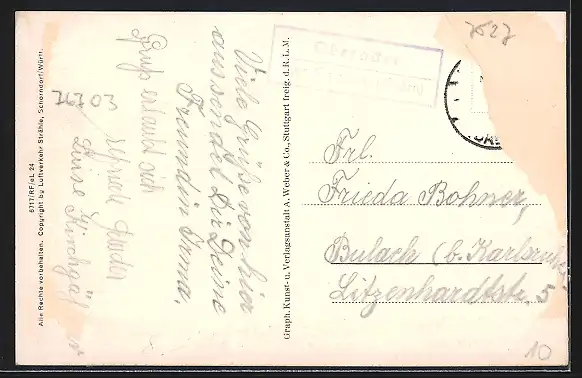 Viele Grüße von hier
aus sendet Dir Deine
Freundin Irma.
Gruß erlaubt sich
Luise Kirchgäß
76703
7627
Oberacker
Frl.
Frieda Bohner,
Bulach (b. Karlsruhe
Litzenhardtstr. 5
10
Graph. Kunst- u. Verlagsanstalt A. Weber & Co., Stuttgart freig. d. R. L. M.
6717/RF/eL 24
Alle Rechte vorbehalten. Copyright by Luftverkehr Strähle, Schorndorf/Württ.